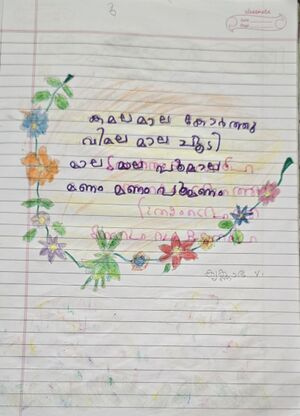 3
classmate
Date
Page
കമലമാല കോർത്തു
വിമല മാല ചൂടി
മാല മാല പൂമാല
മണം മണം പൂമണം